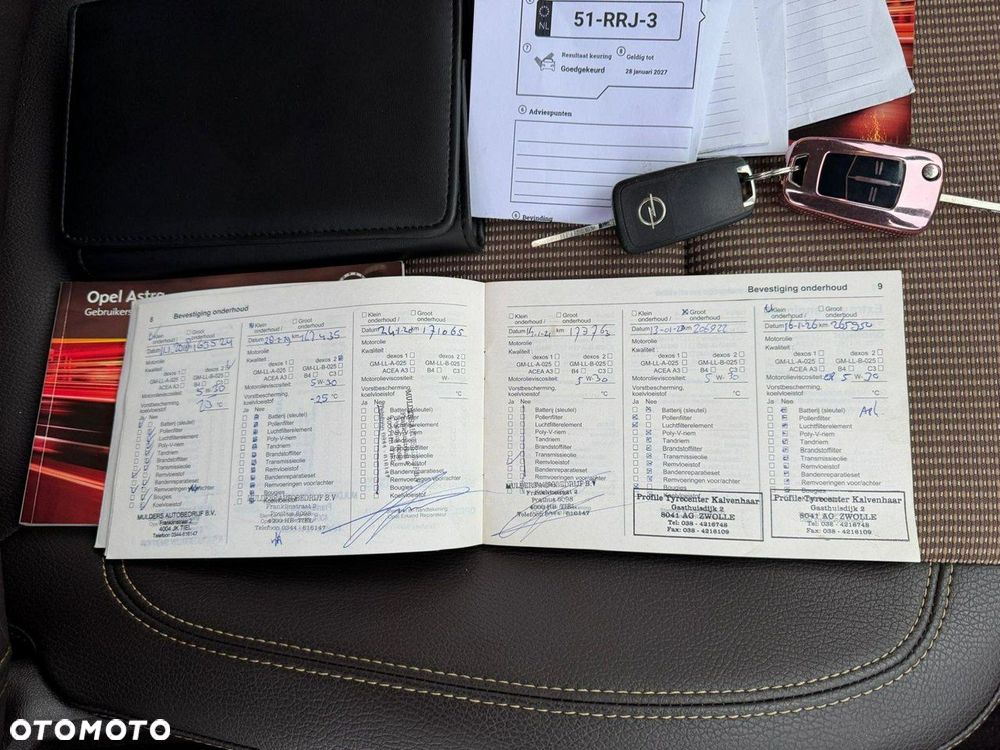 51-RRJ-3
NL
7
Resultaat keuring
Goedgekeurd
8
Geldig tot
28 januari 2027
6 Adviespunten
Bevinding
Opel Astra
8 Bevestiging onderhoud
Klein onderhoud / Groot onderhoud
Datum km
Motorolie
Kwaliteit :
dexos 1 dexos 2
GM-LL-A-025 GM-LL-B-025
ACEA A3 B4 C3
Motorolieviscositeit:
5 W-30
Vorstbescherming,
koelvloeistof °C
Ja Nee
Batterij (sleutel)
Pollenfilter
Luchtfilterelement
Poly-V-riem
Tandriem
Brandstoffilter
Transmissieolie
Remvloeistof
Bandenreparatieset
Remvoeringen voor/achter
Bougies
Koelvloeistof
MULDERS AUTOBEDRIJF B.V.
Franklinstraat 2
4004 JK TIEL
Telefoon 0344-616147
Klein onderhoud / Groot onderhoud
Motorolie
Kwaliteit :
dexos 1 dexos 2
GM-LL-A-025 GM-LL-B-025
ACEA A3 B4 C3
Motorolieviscositeit:
5 W-30
Vorstbescherming,
koelvloeistof -25 °C
Ja Nee
Batterij (sleutel)
Pollenfilter
Luchtfilterelement
Poly-V-riem
Tandriem
Brandstoffilter
Transmissieolie
Remvloeistof
Bandenreparatieset
Remvoeringen voor/achter
Bougies
Koelvloeistof
Franklinstraat 2
Telefoon 0344 - 616147
Klein onderhoud / Groot onderhoud
Datum km 171065
Motorolie
Kwaliteit :
dexos 1 dexos 2
GM-LL-A-025 GM-LL-B-025
ACEA A3 B4 C3
Motorolieviscositeit: W-
Vorstbescherming,
koelvloeistof °C
Ja Nee
Batterij (sleutel)
Pollenfilter
Luchtfilterelement
Poly-V-riem
Tandriem
Brandstoffilter
Transmissieolie
Remvloeistof
Bandenreparatieset
Remvoeringen voor/achter
Bougies
Koelvloeistof
Bevestiging onderhoud 9
Klein onderhoud / Groot onderhoud
Datum km
Motorolie
Kwaliteit :
dexos 1 dexos 2
GM-LL-A-025 GM-LL-B-025
ACEA A3 B4 C3
Motorolieviscositeit:
5 W-30
Vorstbescherming,
koelvloeistof °C
Ja Nee
Batterij (sleutel)
Pollenfilter
Luchtfilterelement
Poly-V-riem
Tandriem
Brandstoffilter
Transmissieolie
Remvloeistof
Bandenreparatieset
Remvoeringen voor/achter
Bougies
MULDERS AUTOBEDRIJF B.V.
Franklinstraat 2
Klein onderhoud / Groot onderhoud
Datum km
Motorolie
Kwaliteit :
dexos 1 dexos 2
GM-LL-A-025 GM-LL-B-025
ACEA A3 B4 C3
Motorolieviscositeit:
5 W-30
Vorstbescherming,
koelvloeistof °C
Ja Nee
Batterij (sleutel)
Pollenfilter
Luchtfilterelement
Poly-V-riem
Tandriem
Brandstoffilter
Transmissieolie
Remvloeistof
Bandenreparatieset
Remvoeringen voor/achter
Bougies
Profile Tyrecenter Kalvenhaar
Gasthuisdijk 2
8041 AG ZWOLLE
Tel: 038 - 4216748
Fax: 038 - 4218109
Klein onderhoud / Groot onderhoud
Datum 16-1-26 km 265950
Motorolie
Kwaliteit :
dexos 1 dexos 2
GM-LL-A-025 GM-LL-B-025
ACEA A3 B4 C3
Motorolieviscositeit: 5 W-30
Vorstbescherming,
koelvloeistof °C
Ja Nee
Batterij (sleutel)
Pollenfilter
Luchtfilterelement
Poly-V-riem
Tandriem
Brandstoffilter
Transmissieolie
Remvloeistof
Bandenreparatieset
Remvoeringen voor/achter
Bougies
Profile Tyrecenter Kalvenhaar
Gasthuisdijk 2
8041 AG ZWOLLE
Tel: 038 - 4216748
Fax: 038 - 4218109
OTOMOTO